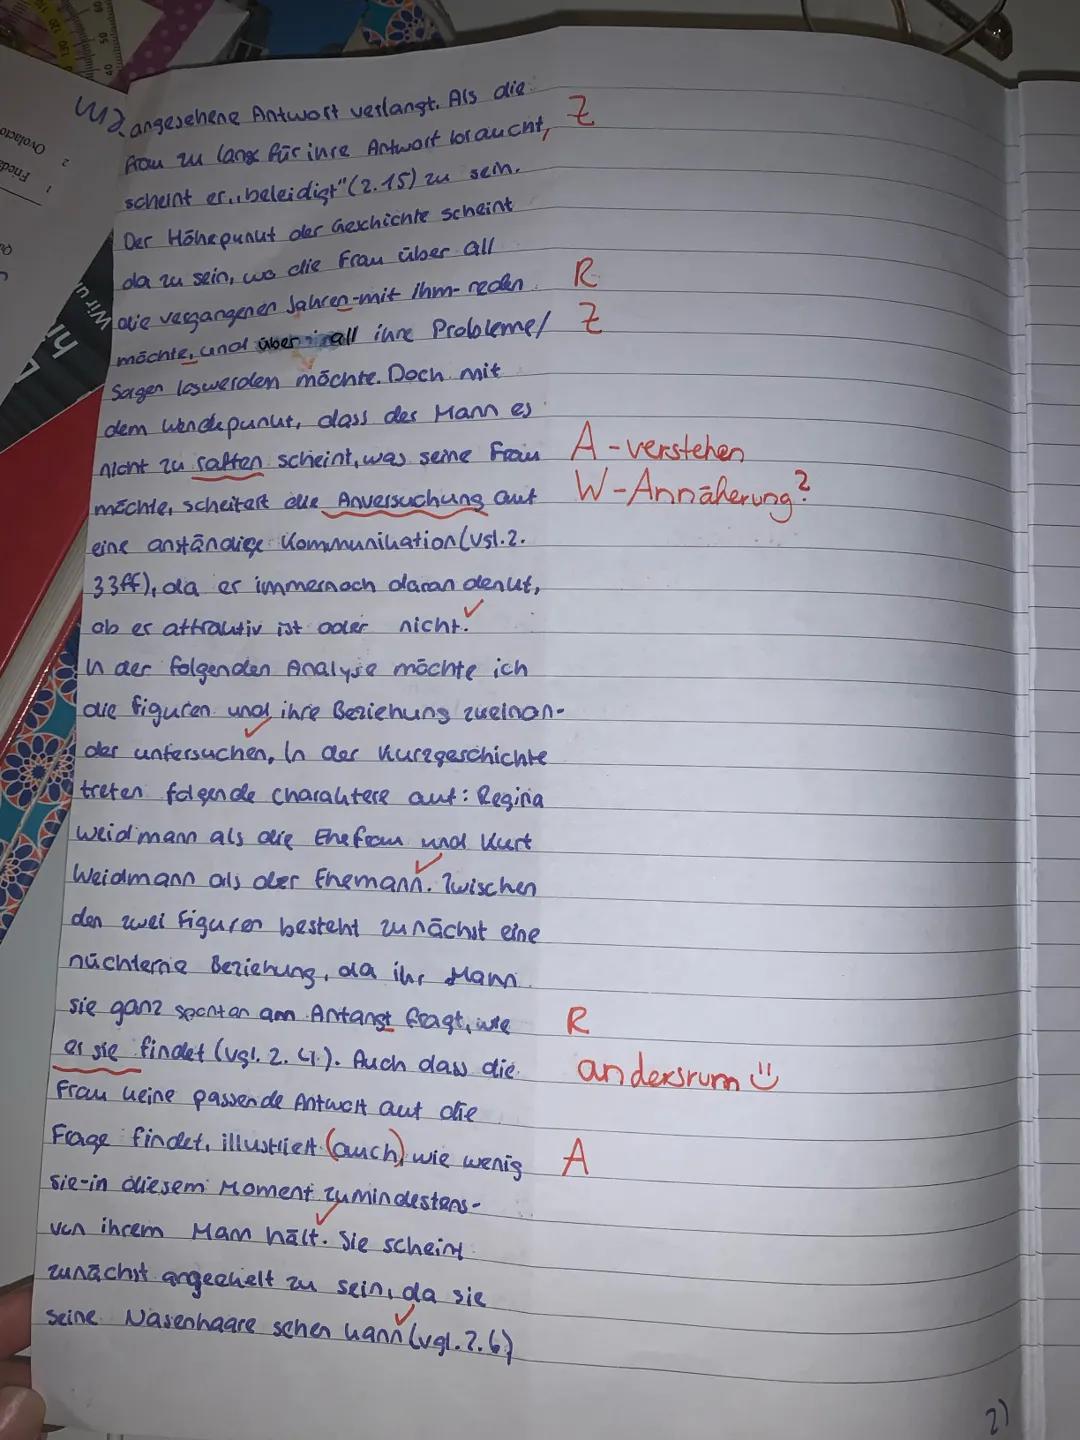 und angesehene Antwort verlangt. Als die
Frau zu lange für ihre Antwort braucht, Z
scheint er „beleidigt" (Z. 15) zu sein.
Der Höhepunkt der Geschichte scheint
da zu sein, wo die Frau über all
die vergangenen Jahren-mit ihm-reden R
möchte, und über all ihre Probleme/ Z
Sorgen loswerden möchte. Doch mit
dem Wendepunkt, dass der Mann es
nicht zu raffen scheint, was seine Frau A-verstehen
möchte, scheitert die Anversuchung auf W-Annäherung?
eine anständige Kommunikation (vgl. Z.
33ff), da er immernoch daran denkt,
ob er attraktiv ist oder nicht.
In der folgenden Analyse möchte ich
die Figuren und ihre Beziehung zueinan-
der untersuchen. In der Kurzgeschichte
treten folgende Charaktere auf: Regina
Weidmann als die Ehefrau und Kurt
Weidmann als der Ehemann. Zwischen
den zwei Figuren besteht zunächst eine
nüchterne Beziehung, da ihr Mann
sie ganz spontan am Anfangt fragt, wie R
er sie findet (vgl. Z. 4.). Auch dass die andersrum
Frau keine passende Antwort auf die
Frage findet, illustriert (auch) wie wenig A
sie-in diesem Moment zumindestens-
von ihrem Mann hält. Sie scheint
zunächst angeekelt zu sein, da sie
seine Nasenhaare sehen kann (vgl. Z. 6)
2)